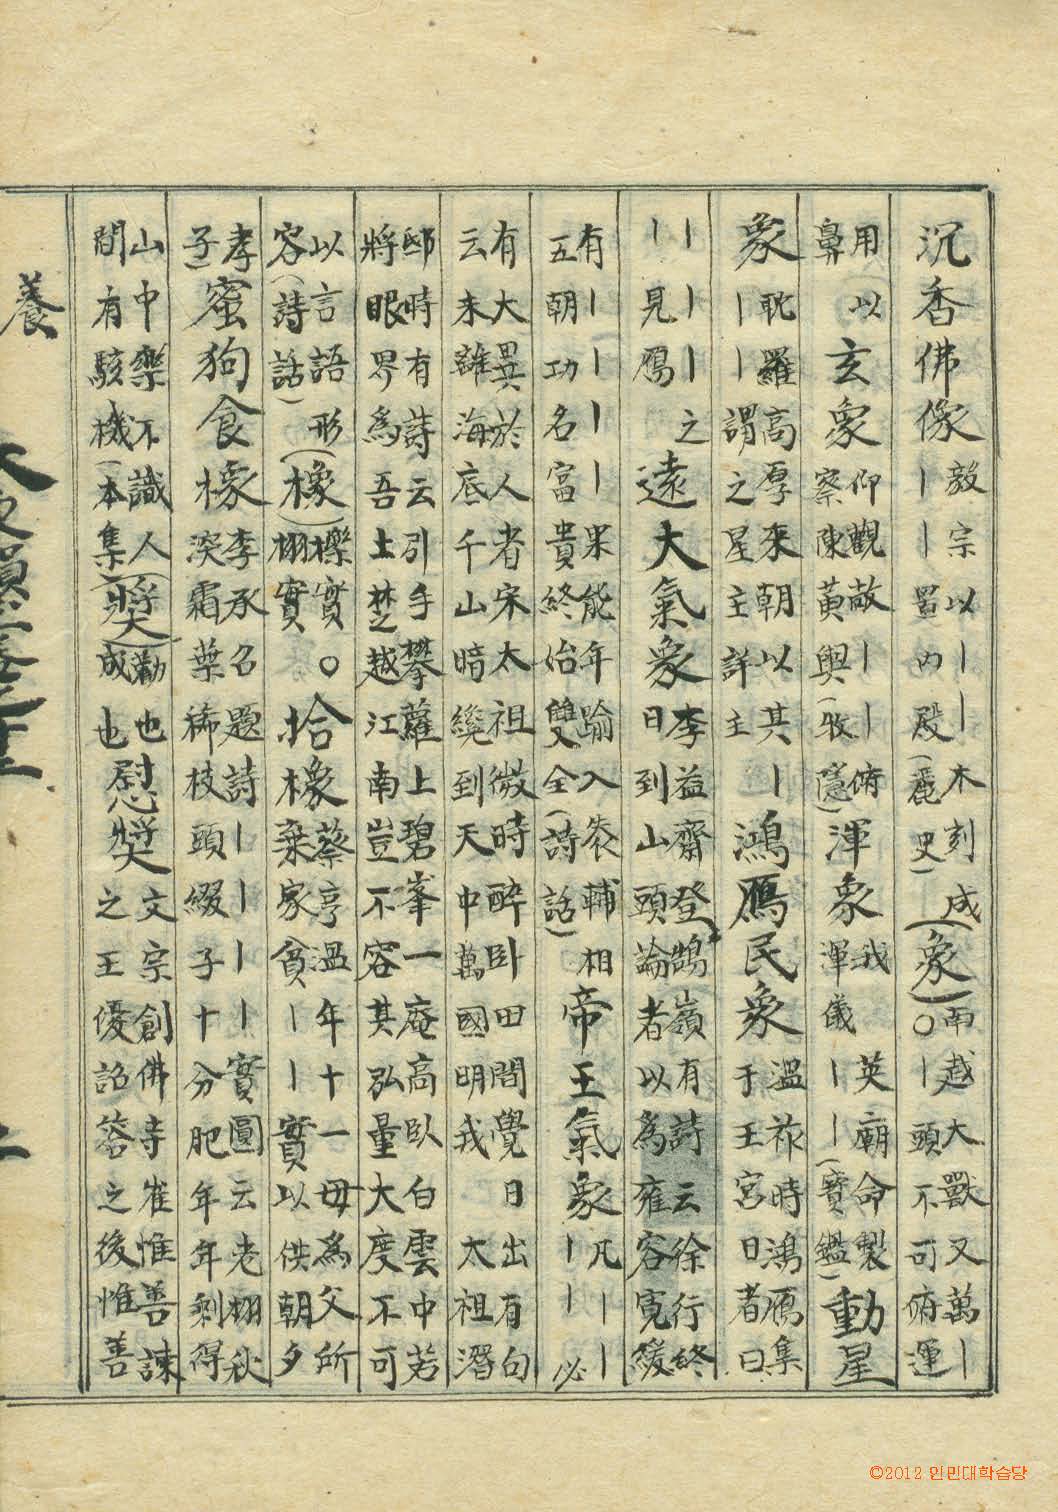 沉香佛像毅宗以丨丨木刻成丨丨置內殿(麗史)(象)南越大獸又萬丨○丨頭不可俯運
用以鼻玄象仰觀敵丨丨俯察陳黃輿(牧隱)渾象我英廟命製渾儀丨丨(寶鑑)動星
象耽羅高厚來朝以其丨丨丨謂之星主詳主鴻鴈民象溫祚時鴻鴈集于王宮日者曰
丨丨丨之丨見鴈遠大氣象李益齋登鵠嶺有詩云徐行終日到山頭論者以爲雍容寬緩
有丨丨丨丨果能年踰入袠輔相五朝功名富貴終始雙全(詩話)帝王氣象凡丨丨丨丨必
有大異於人者宋太祖微時醉臥田間覺日出有句云未離海底千山暗纔到天中萬國明我太祖潛
邸時有詩云引手攀蘿上碧峯一庵高臥白雲中若將眼界爲吾土楚越江南豈不容其弘量大度不可
以言語形容(詩話)(橡)櫟實栩實○拾橡蔡亨溫年十一母爲父所棄家貧丨丨實以供朝夕
孝子)蜜狗食橡李承召題詩丨丨丨丨實圓云老栩秋深霜葉稀枝頭綴子十分肥年年剩得
山中樂不識人間有駭機(本集)(奬)勸也成也慰奬文宗創佛寺崔惟善諫之王優詔答之後惟善
養
©2012 인민대학습당